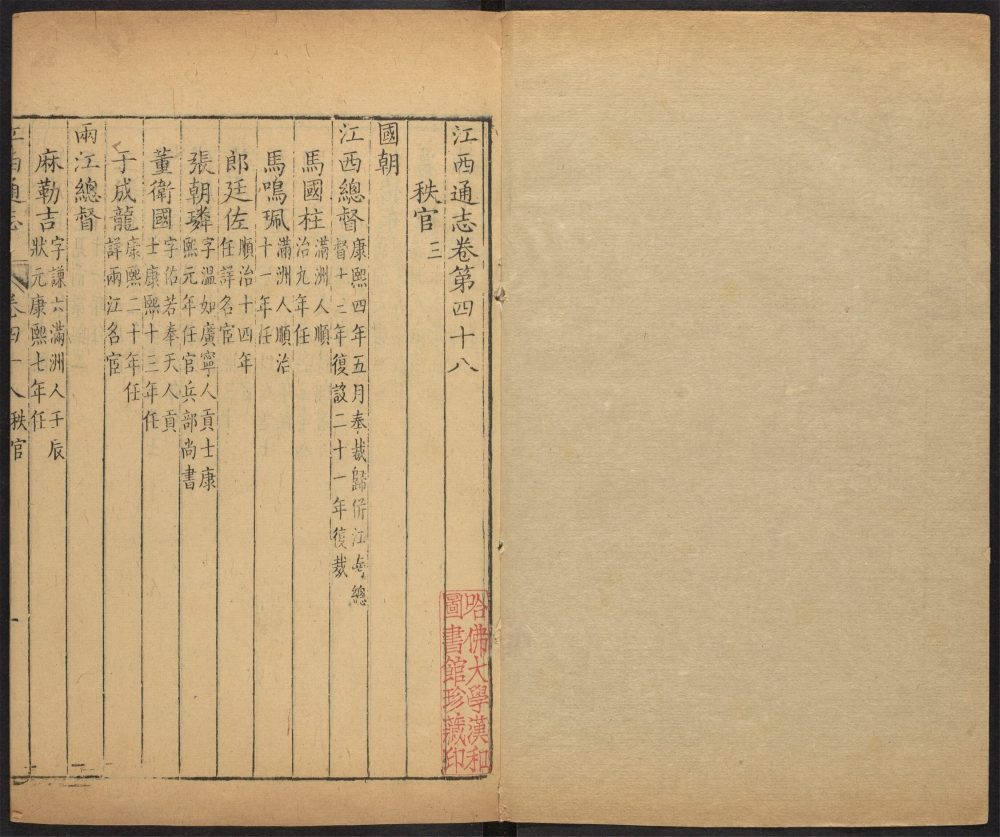 江西通志卷第四十八
秩官三
國朝
江西總督 康熙四年五月奉裁歸併江南總
督十三年復設二十一年復裁
馬國柱 滿洲人順
治九年任
馬鳴珮 滿洲人順治
十一年任
郎廷佐 順治十四年
任詳名宦
張朝璘 字溫如廣寧人貢士康
熙元年任官兵部尚書
董衛國 字佑若奉天人貢
士康熙十三年任
于成龍 康熙二十年任
詳兩江名宦
兩江總督
麻勒吉 字謙六滿洲人壬辰
狀元康熙七年任
江西通志 卷四十八秩官 一
哈佛大學漢和
圖書館珍藏印